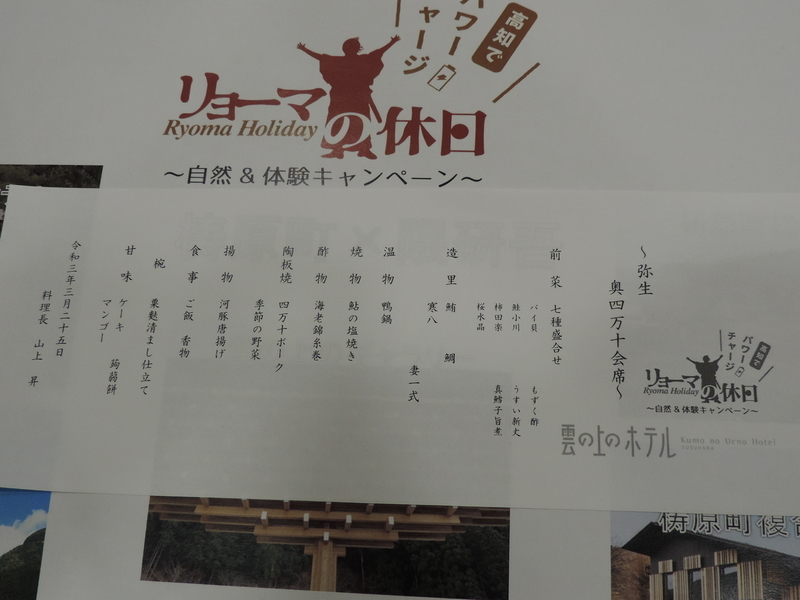 高知で
パワー
チャージ
リョーマの休日
Ryoma Holiday
～自然&体験キャンペーン～
高知で
パワー
チャージ
リョーマの休日
Ryoma Holiday
～自然&体験キャンペーン～
雲の上のホテル
Kumo no Ueno Hotel
YUSUHARA
～弥生
奥四万十会席～
前菜 七種盛合せ
バイ貝 もずく酢
鮭小川 うすい新丈
柿田楽 真鱈子旨煮
桜水晶
造里 鮪 鯛
寒八 妻一式
温物 鴨鍋
焼物 鮎の塩焼き
酢物 海老錦糸巻
陶板焼 四万十ポーク
季節の野菜
揚物 河豚唐揚げ
食事 ご飯 香物
椀 粟麩清まし仕立て
甘味 ケーキ 蒟蒻餅
マンゴー
令和三年三月二十五日
料理長 山上 昇
梼原町複合